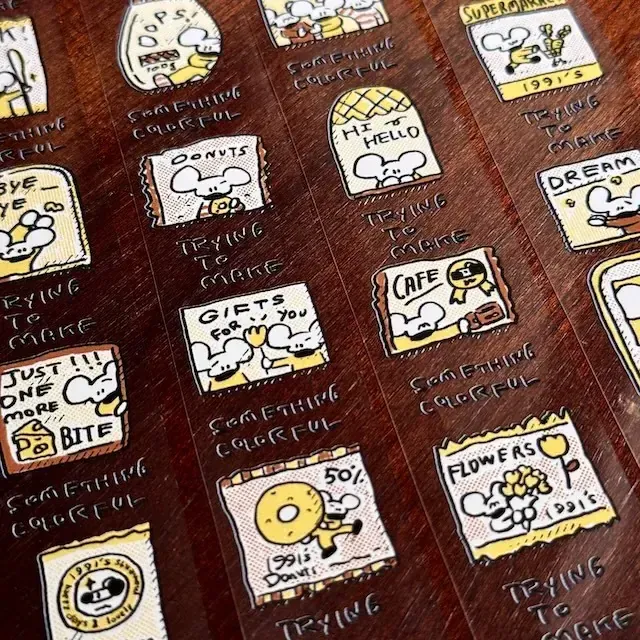 OPS!
100g
SOMETHING
COLORFUL
SOMETHING
COLORFUL
SUPERMARKE
1991's
TRYING
TO
MAKE
BYE
YE
TRYING
TO
MAKE
DONUTS
TRYING
TO
MAKE
HI
HELLO
TRYING
TO
MAKE
DREAM
JUST!!!
ONE
MORE
BITE
SOMETHING
COLORFUL
GIFTS
FOR YOU
SOMETHING
COLORFUL
CAFE
SOMETHING
COLORFUL
50%
1991's
DONUTS
TRYING
FLOWERS
1991's
TRYING
TO
MAKE
1991's